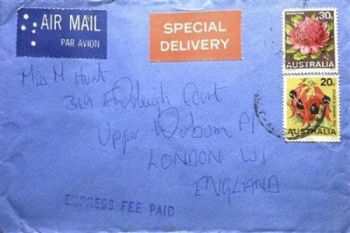 AIR MAIL
PAR AVION
SPECIAL
DELIVERY
30c
AUSTRALIA
20c
AUSTRALIA
Miss M Hunt
349 Endsleigh Court
Upper Woburn Pl
LONDON W1
ENGLAND
EXPRESS FEE PAID